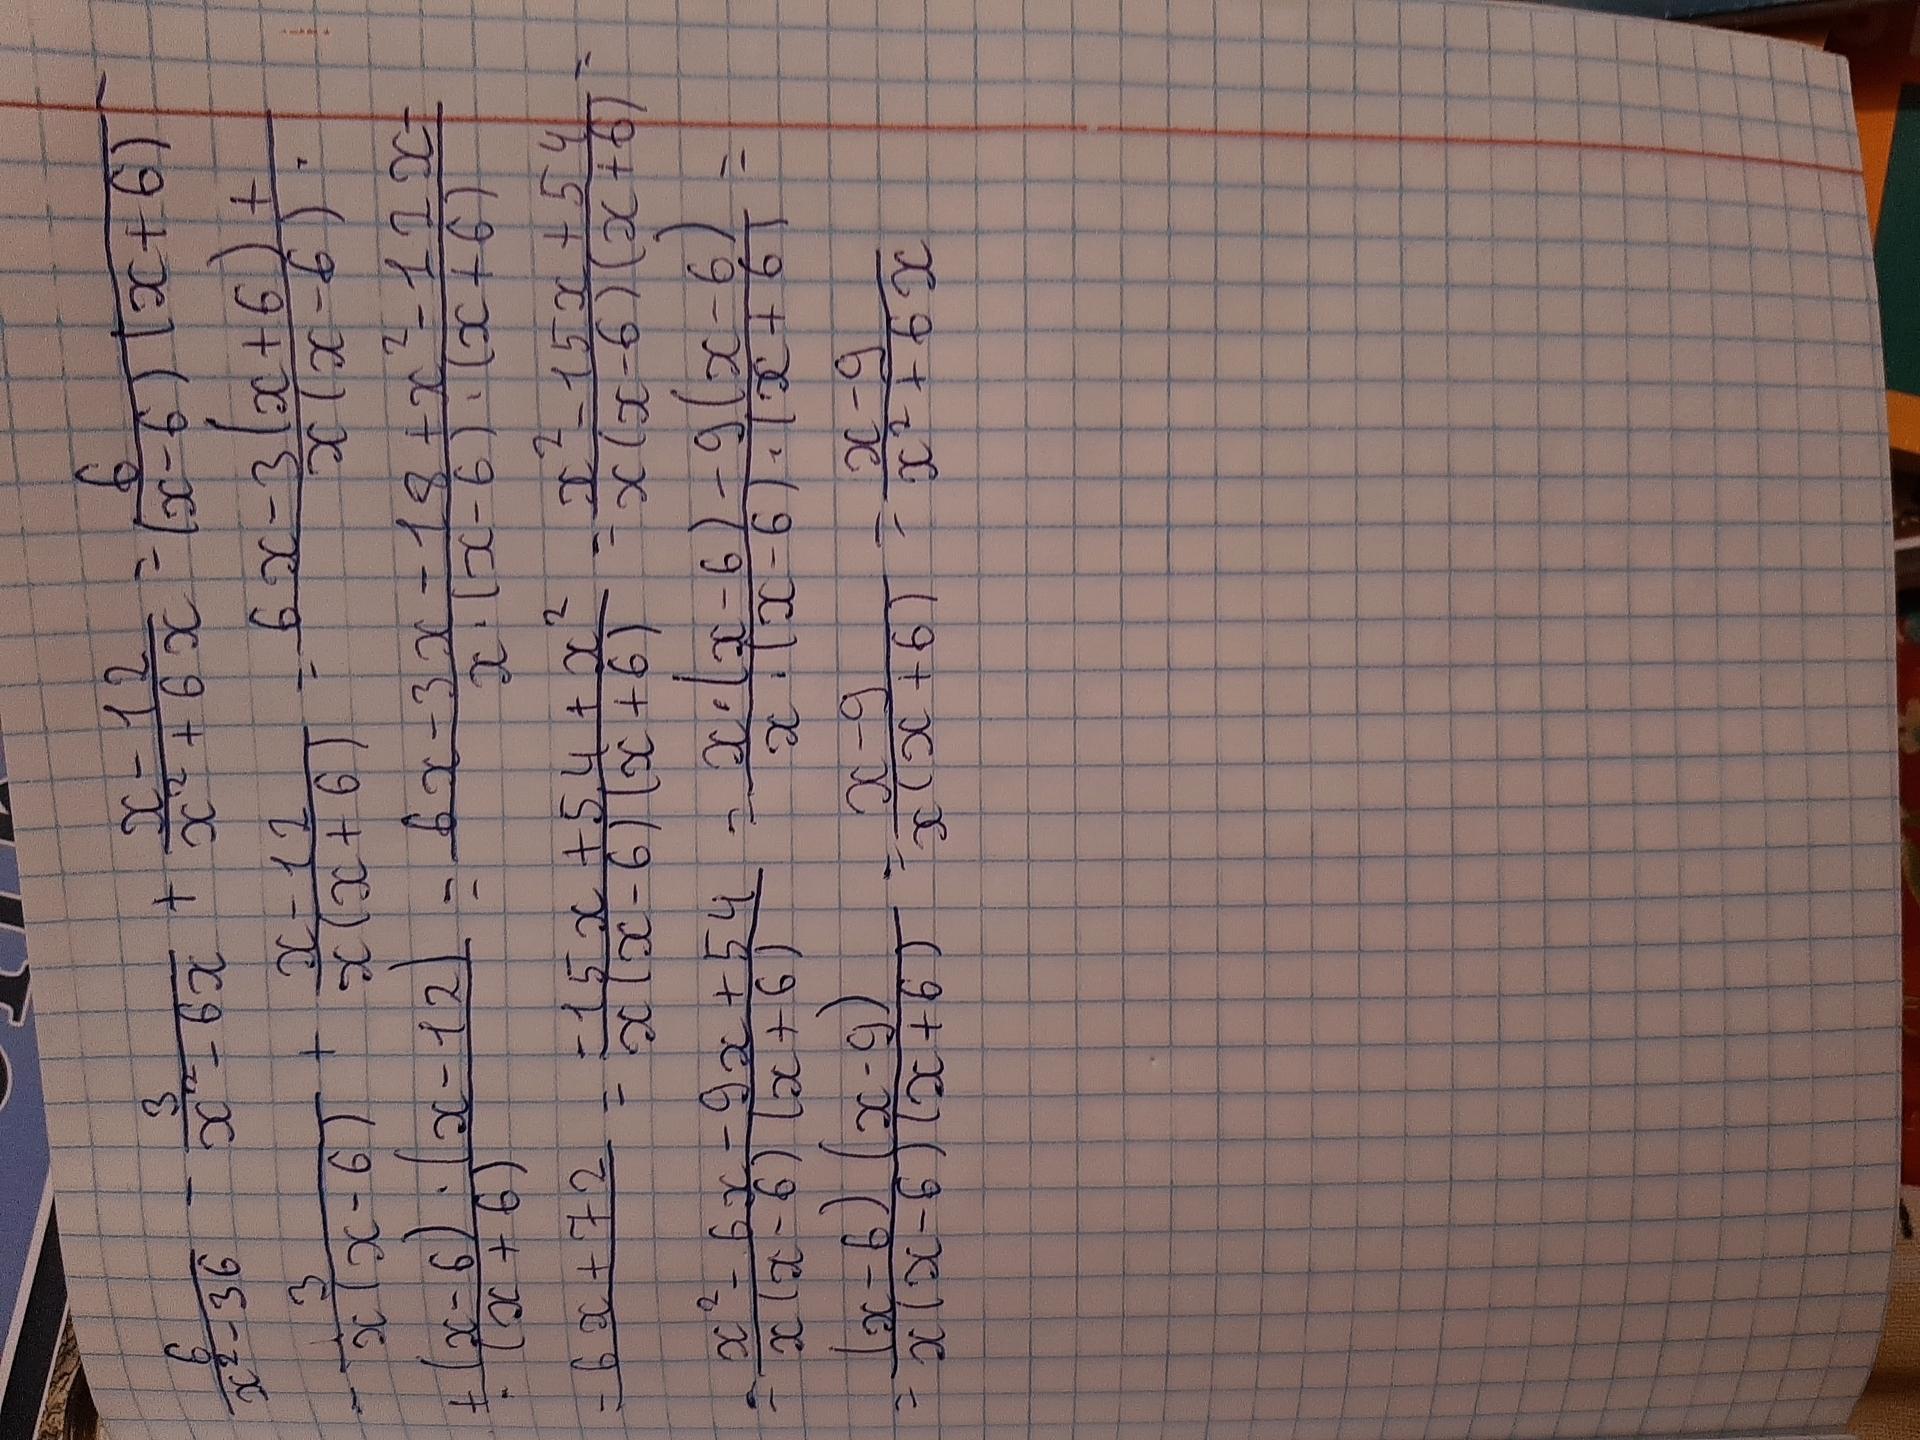 6/(x²-36) - 3/(x²-6x) + (x-12)/(x²+6x) = 6/((x-6)(x+6)) -
- 3/(x(x-6)) + (x-12)/(x(x+6)) = (6x-3(x+6)+)/(x(x-6)·)
(+(x-6)·(x-12))/(·(x+6)) = (6x-3x-18+x²-12x-)/(x·(x-6)·(x+6))
(-6x+72)/ = (-15x+54+x²)/(x(x-6)(x+6)) = (x²-15x+54)/(x(x-6)(x+6)) =
= (x²-6x-9x+54)/(x(x-6)(x+6)) = (x·(x-6)-9(x-6))/(x·(x-6)·(x+6)) =
= ((x-6)(x-9))/(x(x-6)(x+6)) = (x-9)/(x(x+6)) = (x-9)/(x²+6x)